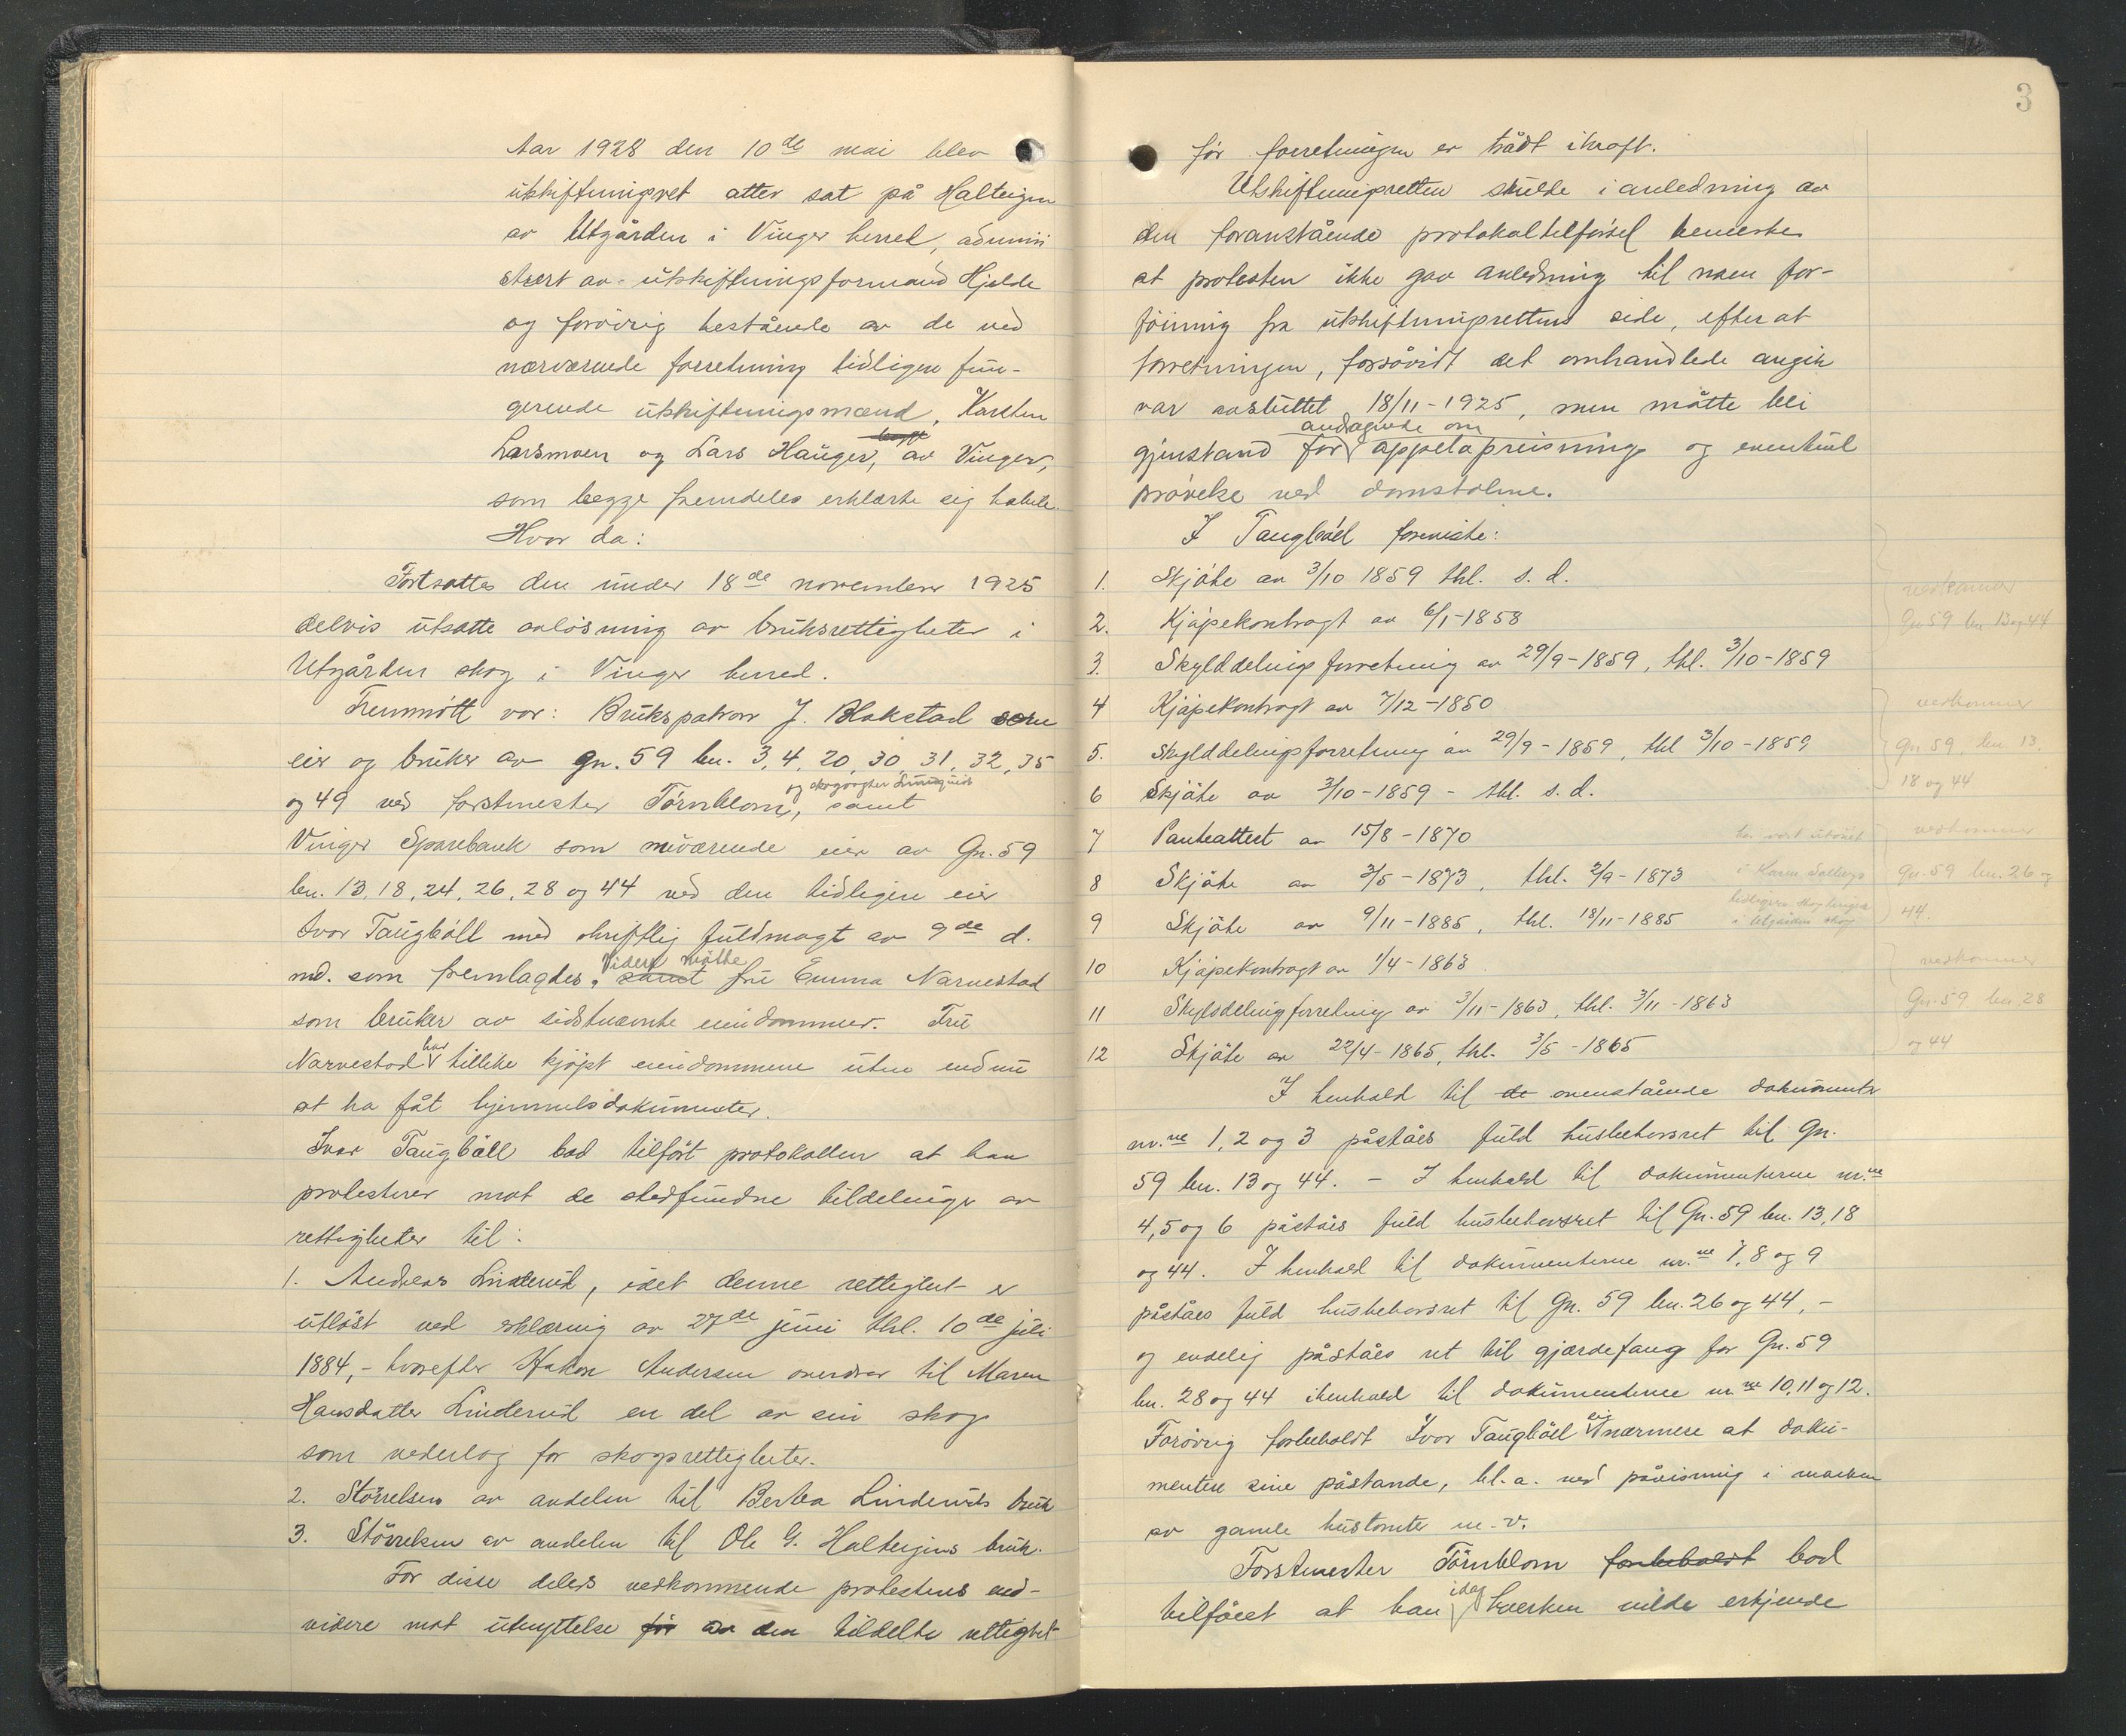 Aar 1928 den 10de mai blev
utskiftningsret atter sat på Halteigen
av Utgården i Vinger herred, admini
strert av utskiftningsformand Hjelde
og forøvrig bestående av de ved
nærværende forretning tidligere fun-
gerende utskiftningsmænd, Karsten
Larsmoen og Lars Hauger, av Vinger,
som begge fremdeles erklærte sig habile.
Hvor da:
Fortsattes den under 18de november 1925
delvis utsatte avløsning av bruksrettigheter i
Utgården skog i Vinger herred.
Fremmøtt var: Brukspatron J. Blakstad som
eier og bruker av gn. 59 bn. 3, 4, 20, 30 31, 32, 35
og skogvogter Lindquist
og 49 ved forstmester Törnblom, samt
Vinger Sparebank som nuværende eier av Gn. 59
bn. 13, 18, 24, 26, 28 og 44 ved den tidligere eier
Ivar Taugbøll med skriftlig fuldmagt av 9de d.
Videre møtte
md. som fremlagdes, samt fru Emma Narvestad
som bruker av sidstnævnte eiendommer. Fru
har
Narvestad tillike kjøpt eiendommene uten endnu
at ha fåt hjemmelsdokumenter.
Ivar Taugbøll bad tilført protokollen at han
protesterer mot de stedfundne tildelinger av
rettigheter til:
1. Andreas Linderud, idet denne rettighet er
utløst ved erklæring av 27de juni thl. 10de juli
1884, - hvorefter Hakon Andersen overdrar til Maren
Hansdatter Linderud en del av sin skog
som vederlag for skogsrettigheter.
2. Størrelsen av andelen til Berthea Linderuds bruk
3. Størrelsen av andelen til Ole G. Halteigens bruk.
For disse delers vedkommende protesteres end-
videre mot utnyttelse før av den tildelte rettighet
3
før forretningen er trådt ikraft.
Utskiftningsretten skulde i anledning av
den foranstående protokoltilførsel bemerke
at protesten ikke gav anledning til noen for-
føining fra utskiftningsrettens side, efter at
forretningen, forsåvidt det omhandlede angik
var avsluttet 18/11-1925, men måtte bli
andragende om
gjenstand for appeloprei​sning og eventuel
prøvelse ved domstolene.
I Taugbøl foreviste:
1. Skjøte av 3/10 1859 thl. s. d.
2. Kjøpekontragt av 6/1-1858
3. Skylddelingsforretning av 29/9-1859, thl. 3/10-1859
4 Kjøpekontragt av 7/12-1850
5. Skylddelingsforretning av 29/9-1859, thl 3/10-1859
6 Skjøte av 3/10-1859 - thl. s. d.
7 Panteattest av 15/8-1870
8 Skjøte av 3/5-1873, thl. 2/9-1873
9 Skjøte av 9/11-1885, thl. 18/11-1885
10 Kjøpekontragt av 1/4-1863
11 Skylddelingsforretning av 3/11-1863, thl. 3/11-1863
12 Skjøte av 22/4-1865, thl. 3/5-1865
vedkommer
Gn 59 bn 13 og 44
vedkommer
Gn. 59, bn. 13,
18 og 44
vedkommer
Gn. 59 bn. 26 og
44.
vedkommer
Gn. 59 bn. 28
og 44
I henhold til de ovenstående dokumenter
nr.ne 1, 2 og 3 påståes fuld husbehovsret til Gn.
59 bn. 13 og 44. - I henhold til dokumenterne nr.ne
4, 5 og 6 påståes fuld husbehovsret til Gn. 59 bn. 13, 18
og 44. I henhold til dokumenterne nr.ne 7, 8 og 9
påståes fuld husbehovsret til Gn. 59 bn. 26 og 44, -
og endelig påståes ret til gjærdefang for Gn. 59
bn. 28 og 44 ihenhold til dokumenterne nr ne 10, 11 og 12.
Forøvrig forbeholdt Ivar Taugbøll sig nærmere at doku-
mentere sine påstande, bl. a. ved påvisning i marken
av gamle hustomter m. v.
Forstmester Törnblom forbeholdt bad
idag
tilføiet at han hverken vilde erkjende